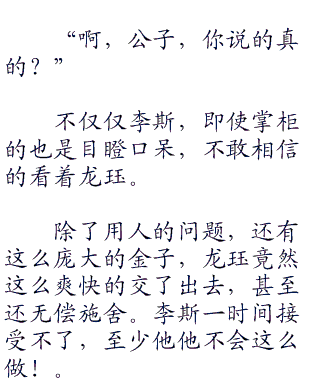 “啊，公子，你说的真
的？”
不仅仅李斯，即使掌柜
的也是目瞪口呆，不敢相信
的看着龙珏。
除了用人的问题，还有
这么庞大的金子，龙珏竟然
这么爽快的交了出去，甚至
还无偿施舍。李斯一时间接
受不了，至少他他不会这么
做！。